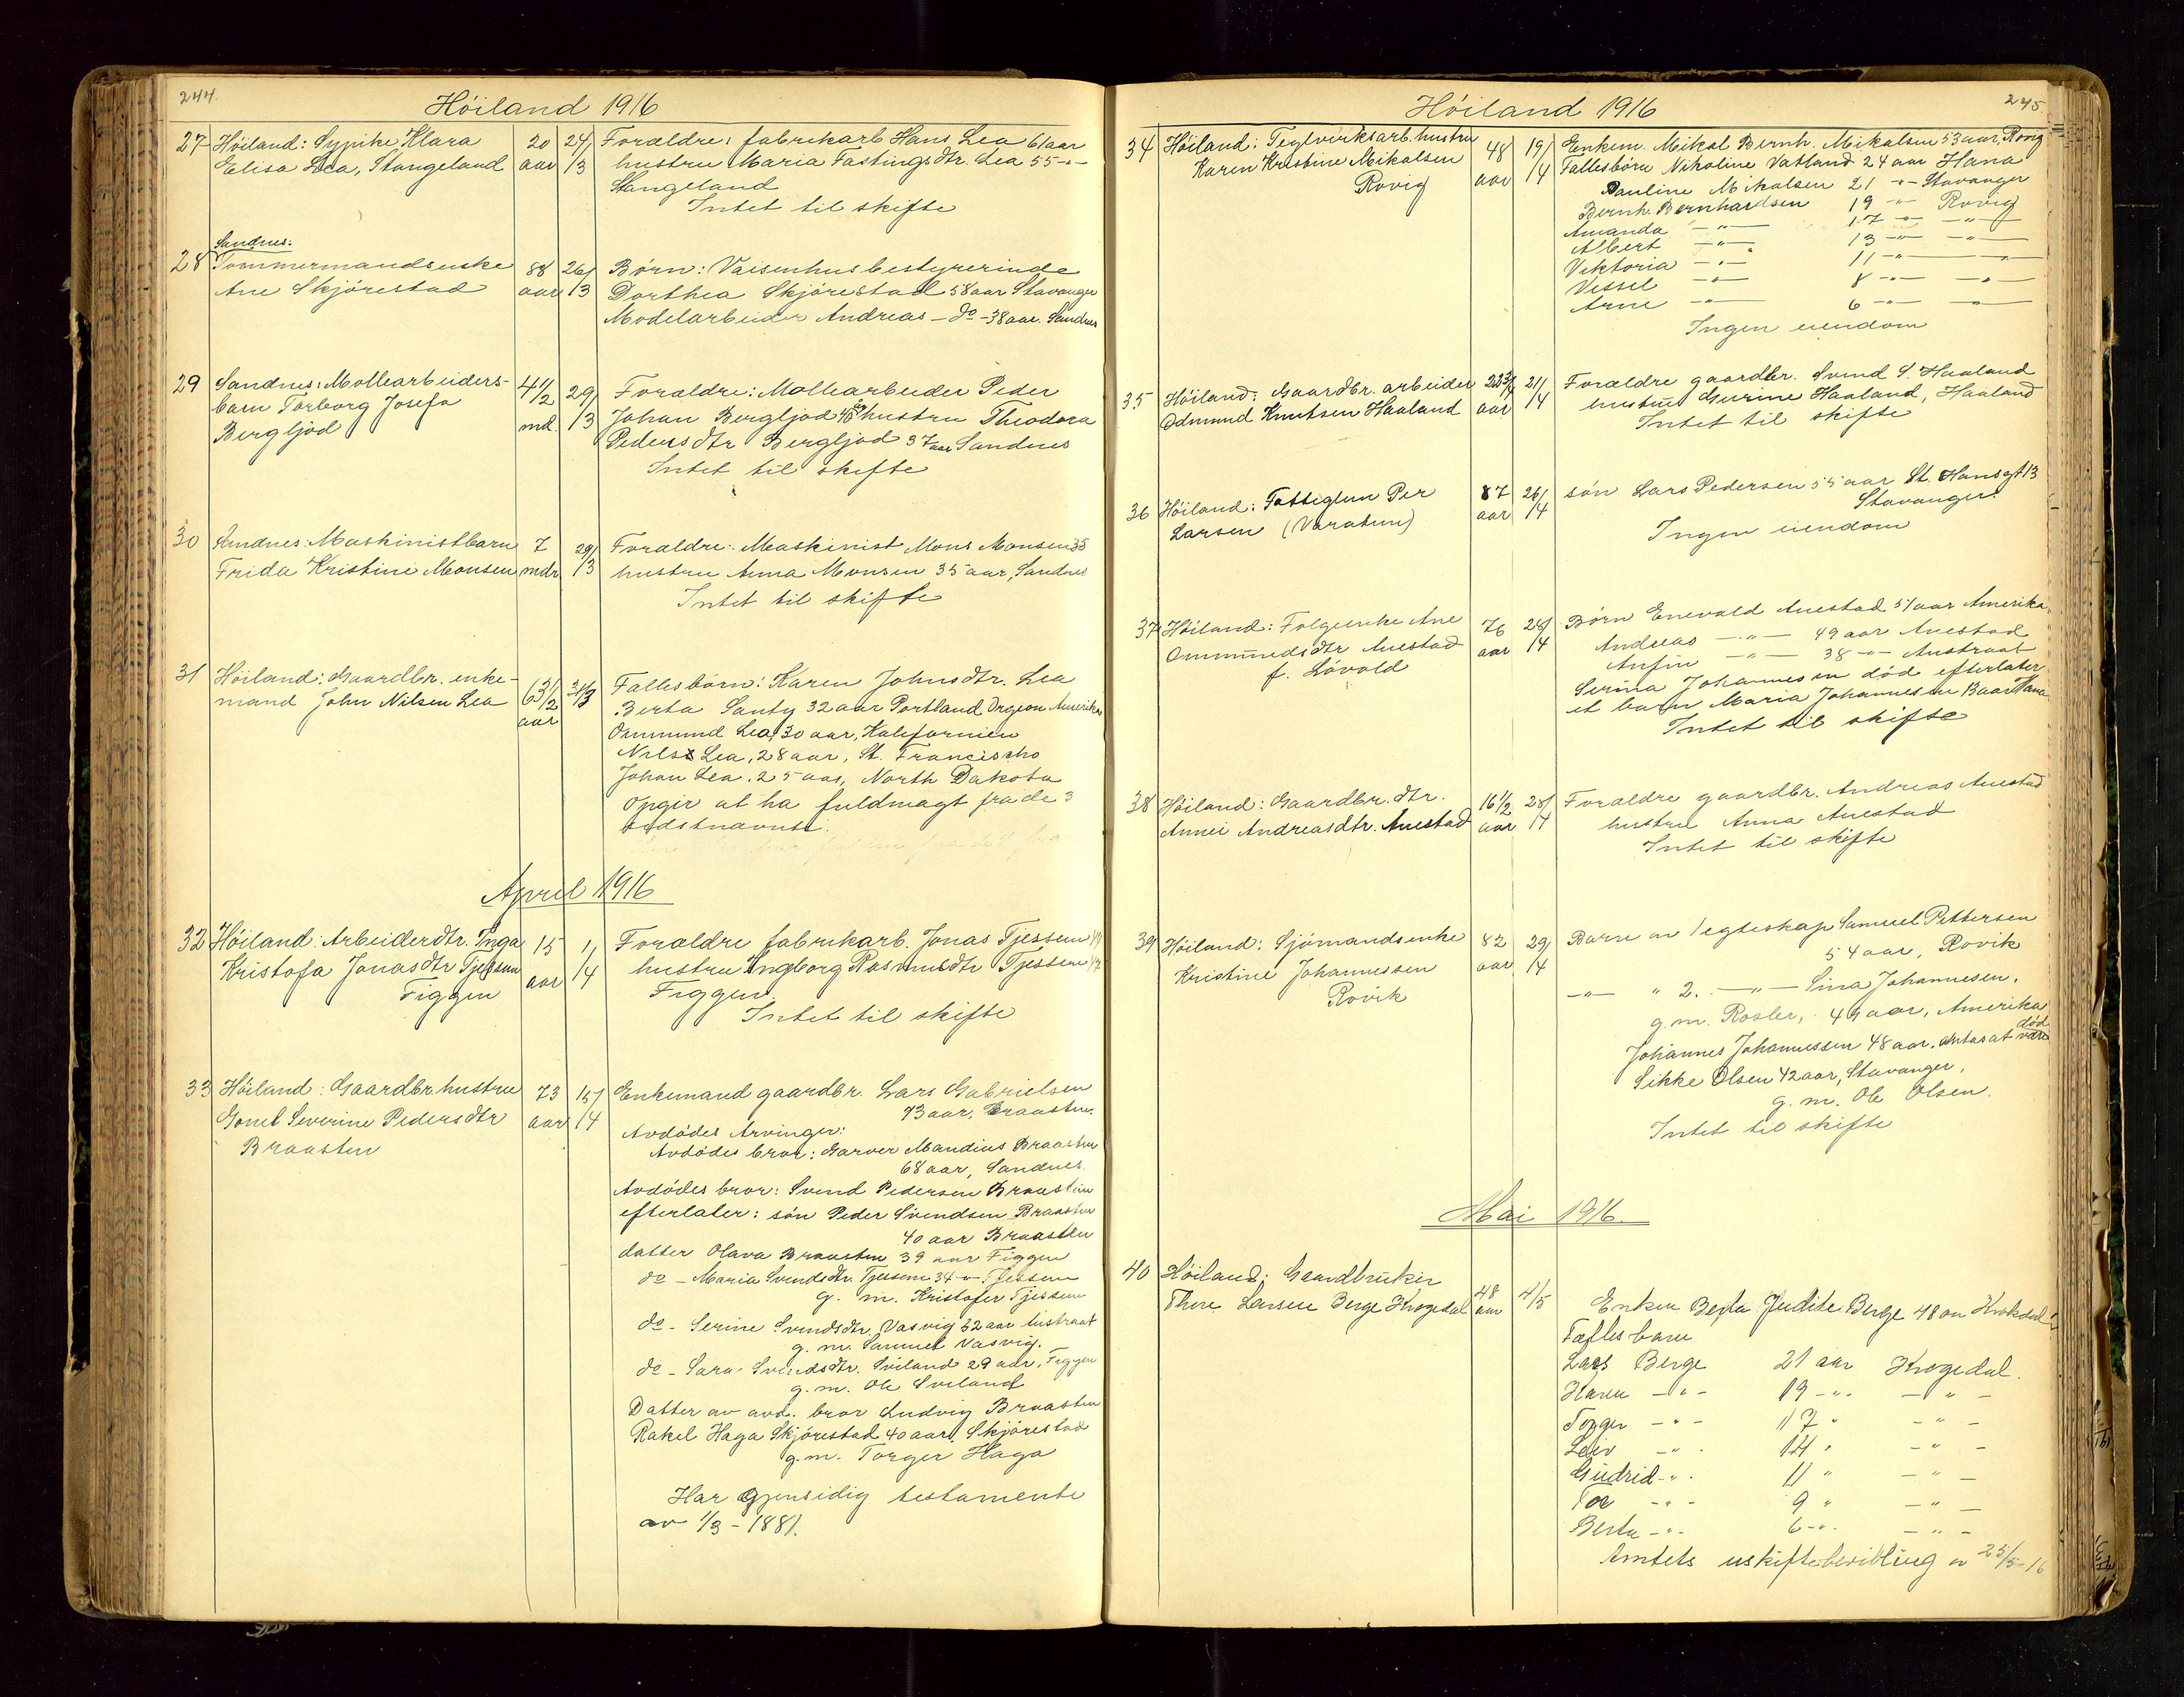 244.
Höiland 1916
27 Höiland: Sypike Klara 20 24/ Forældre: fabrikarb Hans Lea 61 aar
Elisa Lea, Stangeland aar /3 hustru Maria Fastingsdtr. Lea 55 -"-
Stangeland
Intet til skifte
Sandnes:
28 Tømmermandsenke 88 26/ Børn: Vaisenhusbestyrerinde
Ane Skjørestad aar /3 Dorthea Skjørestad 58 aar Stavanger
Modelarbeider Andreas - do - 38 aar. Sandnes
29 Sandnes: Møllearbeiders- 4 1/2 29/ Forældre: Møllearbeider Peder
barn Torborg Josefa md. /3 Johan Bergljod 40 aar hustru Theodora
Bergljod Pedersdtr Bergljod 37 aar Sandnes
Intet til skifte
30 Sandnes: Maskinistbarn 7 29/ Forældre: Maskinist Mons Monsen 35
Frida Kristine Monsen mdr /3 hustru Anna Monsen 35 aar, Sandnes
Intet til skifte
31 Höiland: Gaardbr. enke- 63 1/2 31/3 Fællesbørn: Karen Johnsdtr. Lea
mand John Nilsen Lea aar Berta Santy 32 aar Portland Orgeon Amerika
Ommund Lea, 30 aar, Kalefornien
Nils Lea, 28 aar, St. Francischo
Johan Lea, 25 aar, North Dakota
Opgir at ha fuldmagt fra de 3
sidstnævnte.
April 1916
32 Höiland: Arbeiderdtr. Inga 15 1/ Forældre fabrikarb. Jonas Tjessem
Kristofa Jonasdtr Tjessem aar /4 hustru Ingborg Rasmusdtr Tjessem
Figgen Figgen
Intet til skifte
33 Höiland: Gaardbr. hustru 73 15/ Enkemand gaardbr. Lars Gabrielsen
Gonel Severine Pedersdtr aar /4 73 aar, Braasten
Braasten Avdødes Arvinger:
Avdødes bror: Garver Mandius Braasten
68 aar, Sandnes
Avdødes bror: Svend Pedersen Braasten
efterlater: søn Peder Svendsen Braasten
40 aar Braasten
datter Olava Braasten 39 aar Figgen
do - Maria Svendsdtr. Tjessem 34 -"- Tjessem
g. m. Kristofer Tjessem
do - Serine Svendsdtr. Vasvig 32 aar Austraat
g. m. Samuel Vasvig.
do - Sara Svendsdtr. Sviland 29 aar, Figgen
g. m. Ole Sviland
Datter av avd. bror Ludvig Braasten
Rakel Haga Skjørestad 40 aar, Skjørestad
g. m. Torger Haga
Har gjensidig testamente
av 1/3 - 1881.
245
Höiland 1916
34 Höiland: Teglverksarb. hustru 48 19/ Enkem. Mikal Bernh. Mikalsen 53 aar, Rovig
Karen Kristine Mikalsen aar /4 Fællesbørn Nikoline Vatland 24 aar Hana
Rovig Pauline Mikalsen 21 -"- Stavanger
Bernh. Bernhardsen 19 -"- Rovig
Amanda -"- 17 -"- -"-
Albert -"- 13 -"- -"-
Viktoria -"- 11 -"- -"-
Vessel -"- 8 -"- -"-
Arne -"- 6 -"- -"-
Ingen eiendom
35 Höiland: Gaardbr. arbeider 21/ Forældre gaardbr. Svend S. Haaland
Odmund Knutsen Haaland aar /4 hustru Gurine Haaland, Haaland
Intet til skifte
36 Höiland: Fattiglem Per 87 26/ søn Lars Pedersen 55 aar St. Hansgt 13
Larsen (Varatun) aar /4 Stavanger.
Ingen eiendom
37 Höiland: Følgeenke Ane 76 28/ Børn Enevald Auestad 51 aar Amerika,
Ommundsdtr Auestad aar /4 Andreas -"- 49 aar Auestad
f. Lövold Anfin -"- 38 -"- Austraat
Serina Johannesen død efterlater
et barn Maria Johannesen 13 aar Hana
Intet til skifte
38 Höiland: Gaardbr. dtr. 16 1/2 28/ Forældre gaardbr. Andreas Auestad
Annei Andreasdtr. Auestad aar /4 hustru Anna Auestad
Intet til skifte
39 Höiland: Sjømandsenke 82 29/ Barn av 1 egteskap Samuel Pettersen
Kristine Johannessen aar /4 54 aar, Rovik
Rovik -"- " 2. -"- Sina Johannesen,
g. m. Rosler, 49 aar, Amerika
Johannes Johannessen 48 aar, antas at være død
Sikke Olsen 42 aar, Stavanger,
g. m. Ole Olsen.
Intet til skifte
Mai 1916.
40 Höiland: Gaardbruker 48 4/5 Enken Berta Judite Berge 48 aar Krokedal
Thore Larsen Berge Krogedal aar Fælles barn
Lars Berge 21 aar Krogedal.
Hanna -"- 19 -"- -"-
Torger -"- 17 " -"-
Leiv -"- 14 " -"-
Gudrid -"- 11 " -"-
Tor -"- 9 " -"-
Berta -"- 6 -"- -"-
Amtets uskiftebevilling av 25/5-16